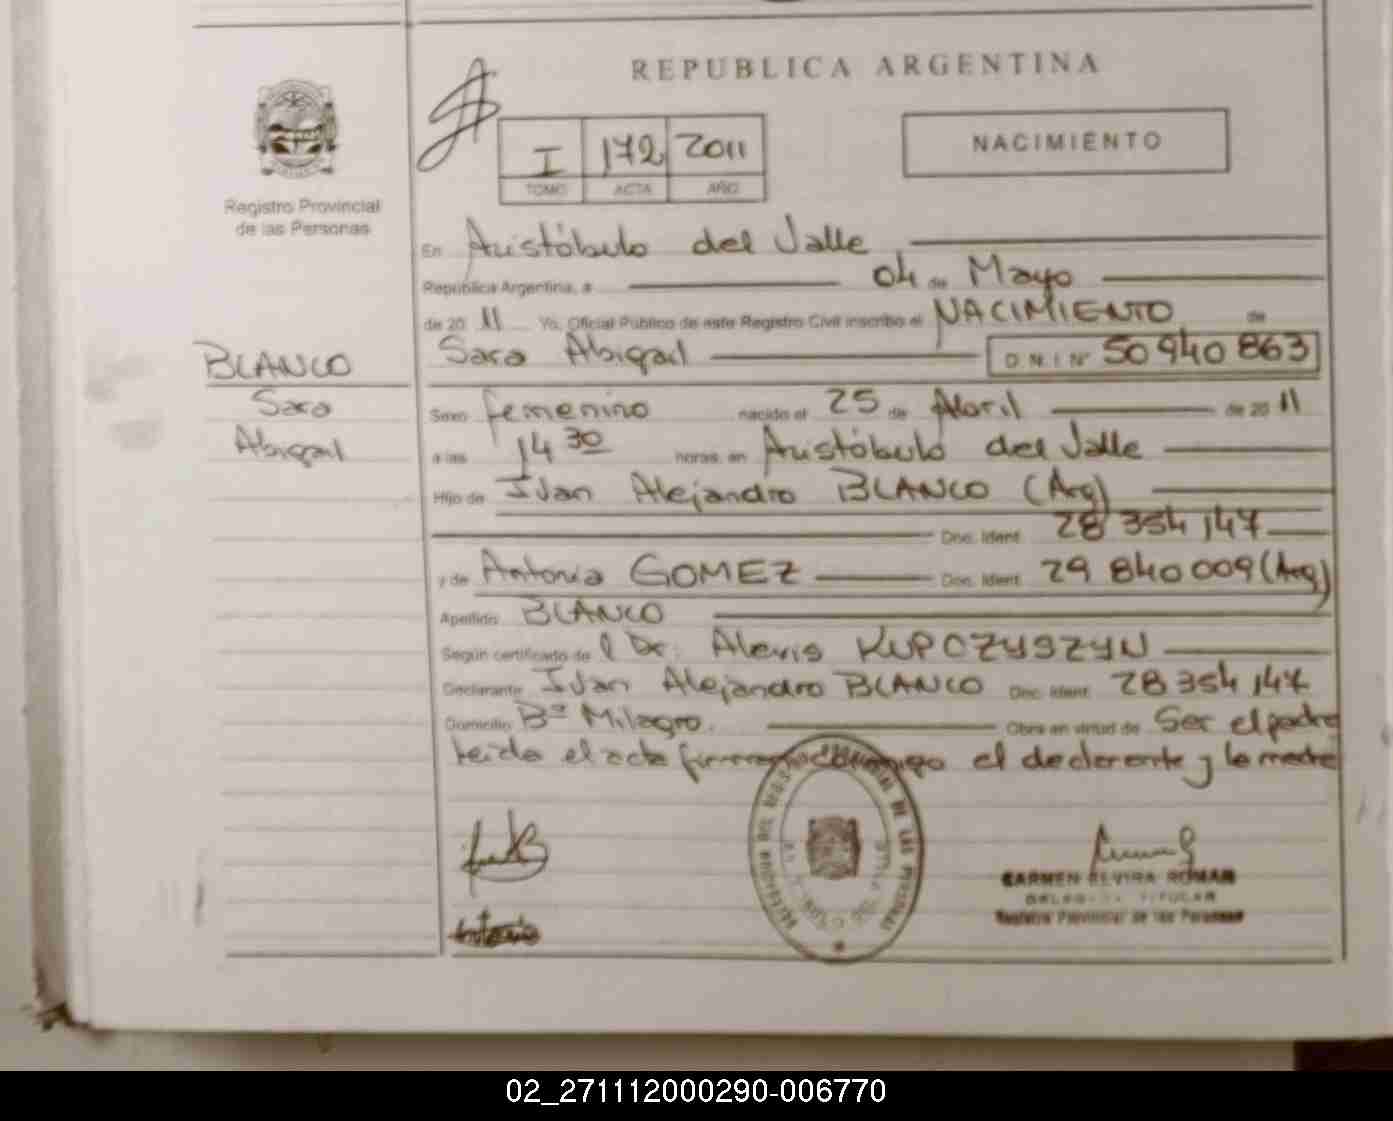 REPUBLICA ARGENTINA
I 172 2011
TOMO ACTA AÑO
NACIMIENTO
Registro Provincial
de las Personas
BLANCO
Sara
Abigail
En Aristóbulo del Valle
República Argentina, a 04 de Mayo
de 20 11 Yo, Oficial Público de este Registro Civil inscribo el NACIMIENTO de
Sara Abigail D.N.I Nº 50 940 863
Sexo femenino nacido el 25 de Abril de 20 11
a las 14 30 horas, en Aristóbulo del Valle
Hijo de Ivan Alejandro BLANCO (Arg)
Doc. Ident. 28 354 147
y de Antonia GOMEZ Doc. Ident. 29 840 009 (Arg)
Apellido BLANCO
Según certificado de l Dr. Alexis KUPCZYSZYN
Declarante Ivan Alejandro BLANCO Doc. Ident. 28 354 147
Domicilio Bº Milagro. Obra en virtud de Ser el padre
leida el acta firman conmigo el declarante y la madre
Antonia
CARMEN ELVIRA ROMAN
TITULAR
Registro Provincial de las Personas
02_271112000290-006770